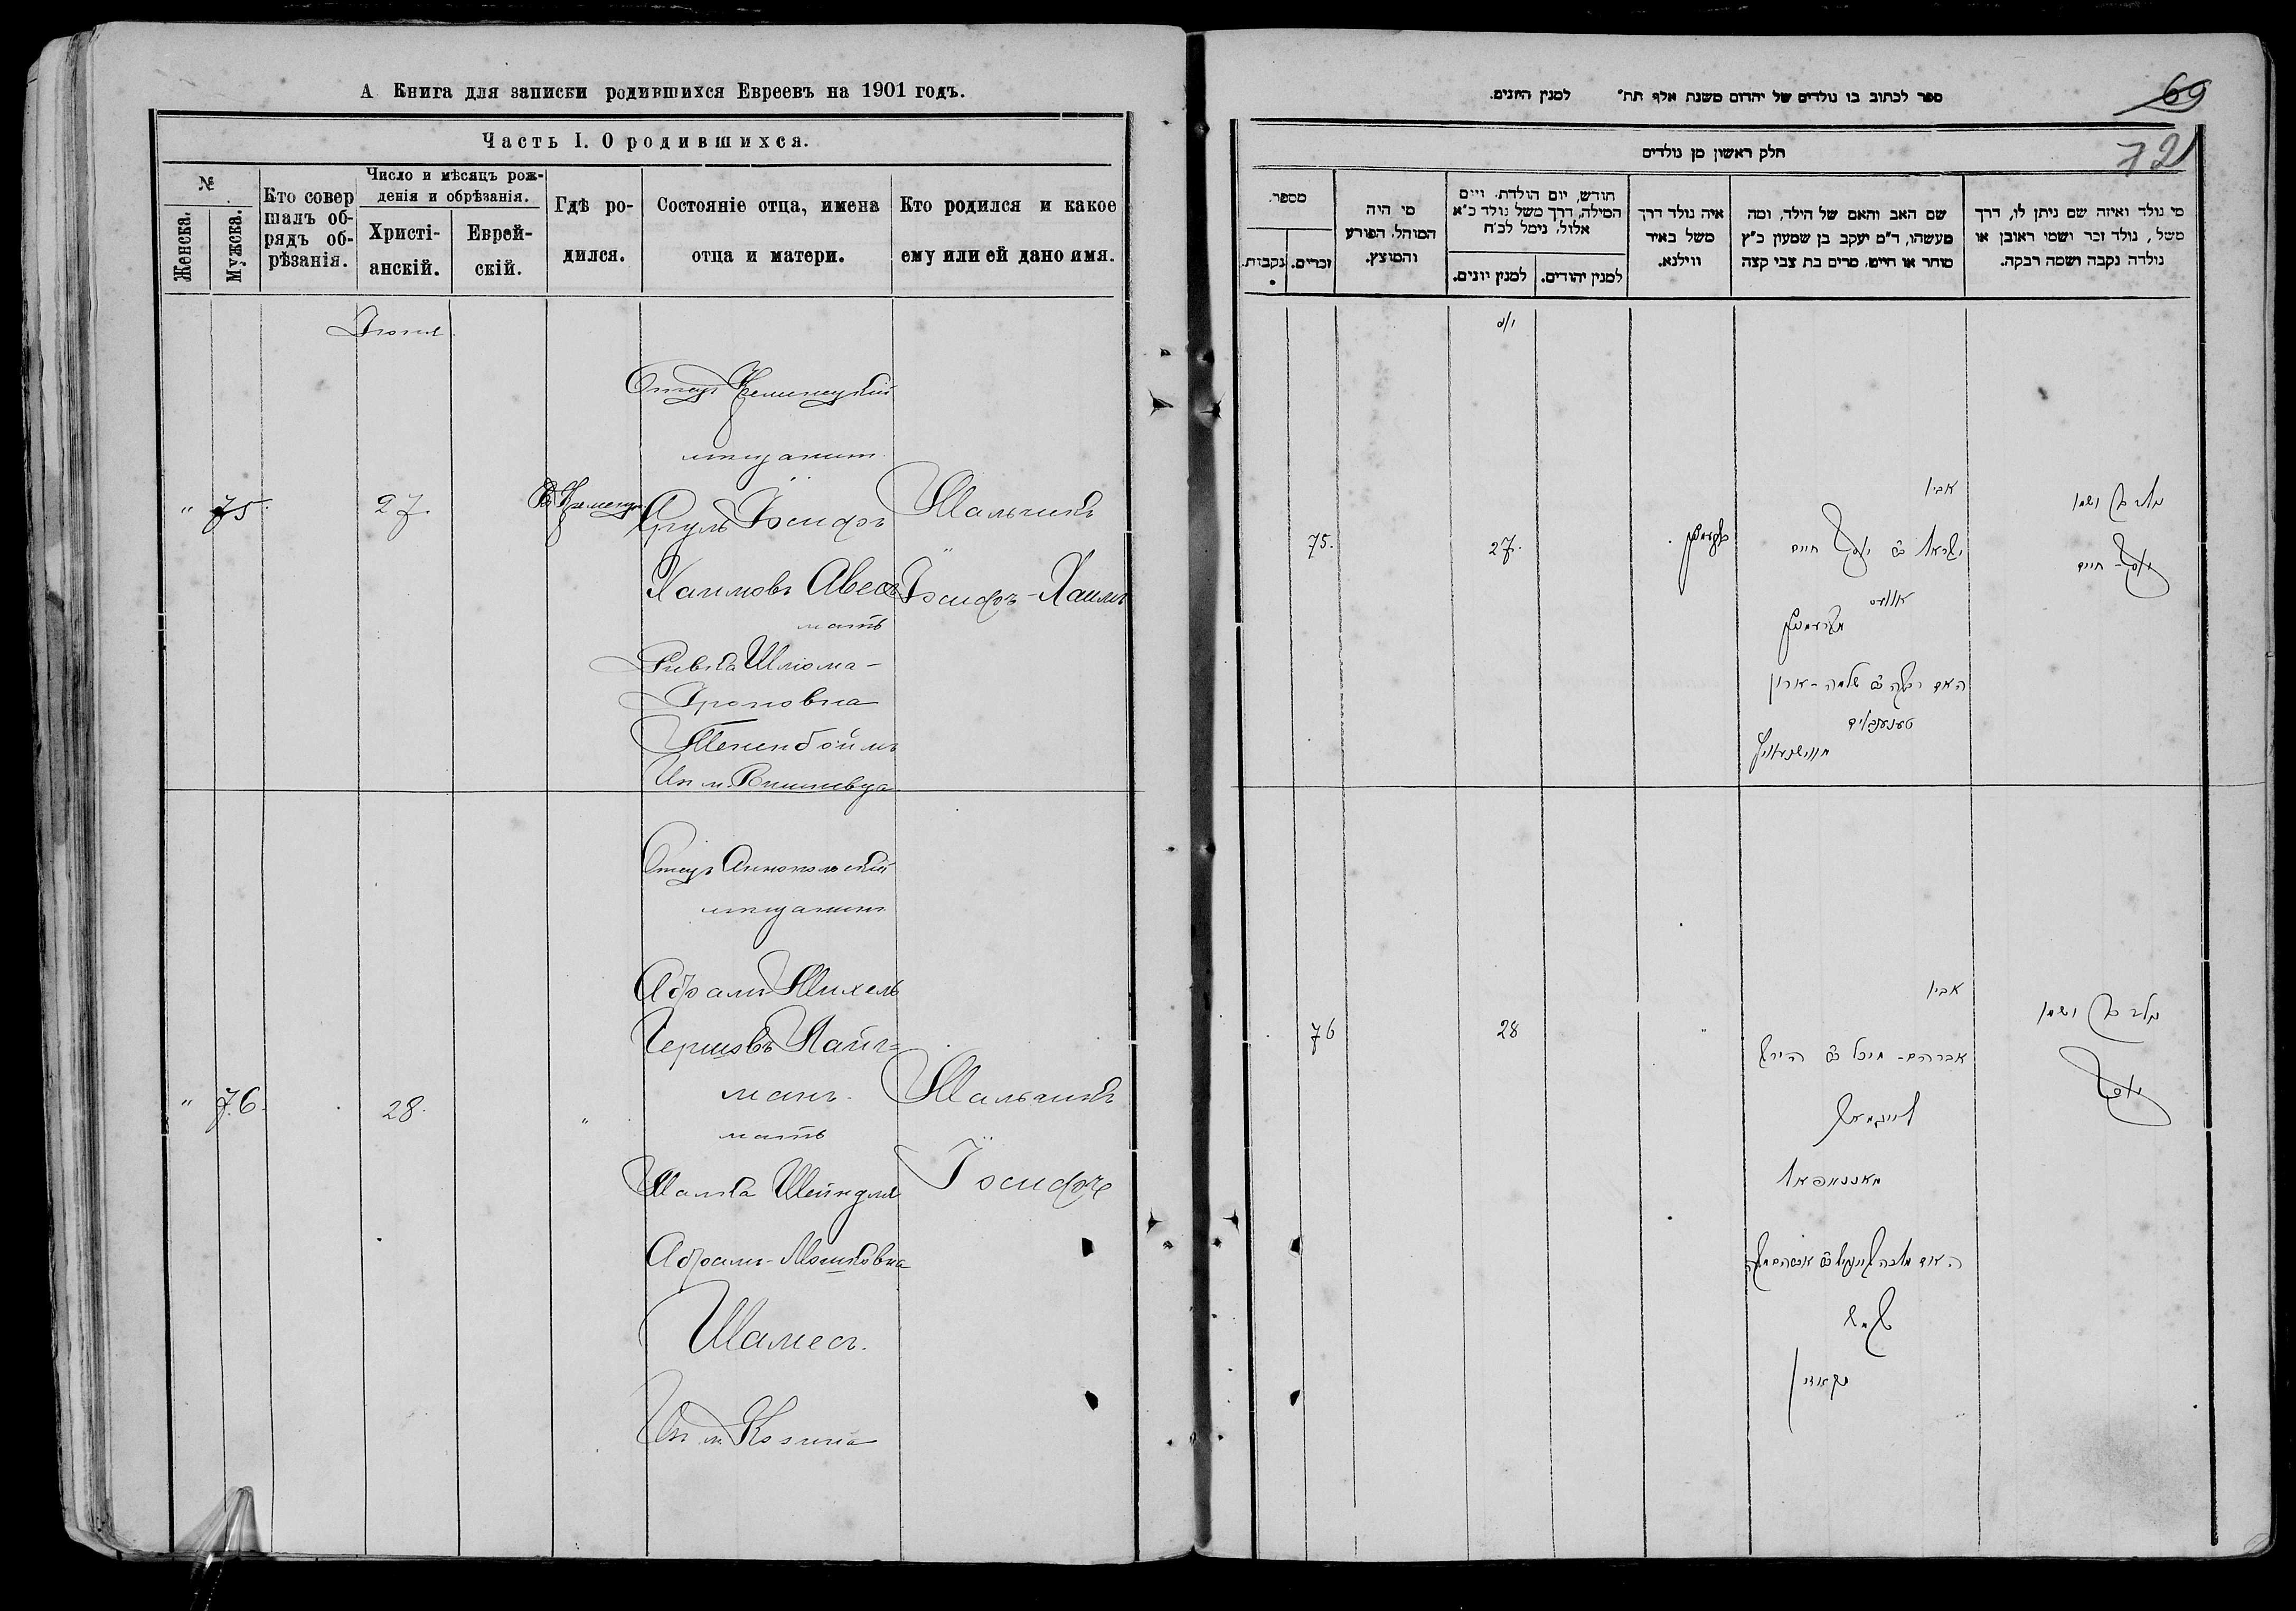 А Книга для записки родившихся Евреевъ на 1901 годъ.
Часть I. О родившихся.
№
Женска.
Мужска.
Кто совершалъ обрядъ обрѣзанія.
Число и мѣсяцъ рожденія и обрѣзанія.
Христіанскій.
Еврейскій.
Гдѣ родился.
Состояніе отца, имена отца и матери.
Кто родился и какое ему или ей дано имя.
" 75.
27.
Отецъ Кременецкій
мѣщанинъ
Іосифъ
Хаимовъ
мать
Ривка Шлiома-
Ароновна
Тененбоймъ
Из м. Вишневца
Мальчикъ
Іосифъ-Хаимъ
" 76.
28.
"
Отецъ Аннопольскій
мѣщанинъ
Абрамъ Михель
Гершовъ
манъ.
мать
Малка Шейндля
Абрамъ-Мошковна
Шамесъ.
Из м. Козина
Мальчикъ
Іосифъ
ספר לכתוב בו נולדים של יהדום משנת אלף תת" למנין היונים.
69
72
חלק ראשון מן נולדים
מספר.
נקבות.
זכרים.
מי היה המוהל, הפורע והמוצץ.
חודש, יום הולדת, ויום המילה, דרך משל נולד כ"א אלול, נימל לכ"ח
למנין יונים.
למנין יהודים.
איה נולד דרך משל באיר ווילנא.
שם האב והאם של הילד, ומה מעשהו, ד"מ יעקב בן שמעון כ"ץ סוחר או חייט, מרים בת צבי קצה
מי נולד ואיזה שם ניתן לו, דרך משל, נולד זכר ושמו ראובן או נולדה נקבה ושמה רבקה.
75.
27.
אביו
ישראל יוסף חיים
האם רבקה שלמה-ארון
נולד בן ושמו
יוסף-חיים
76
28
"
אביו
אברהם-מיכל הירש
נולד בן ושמו
יוסף